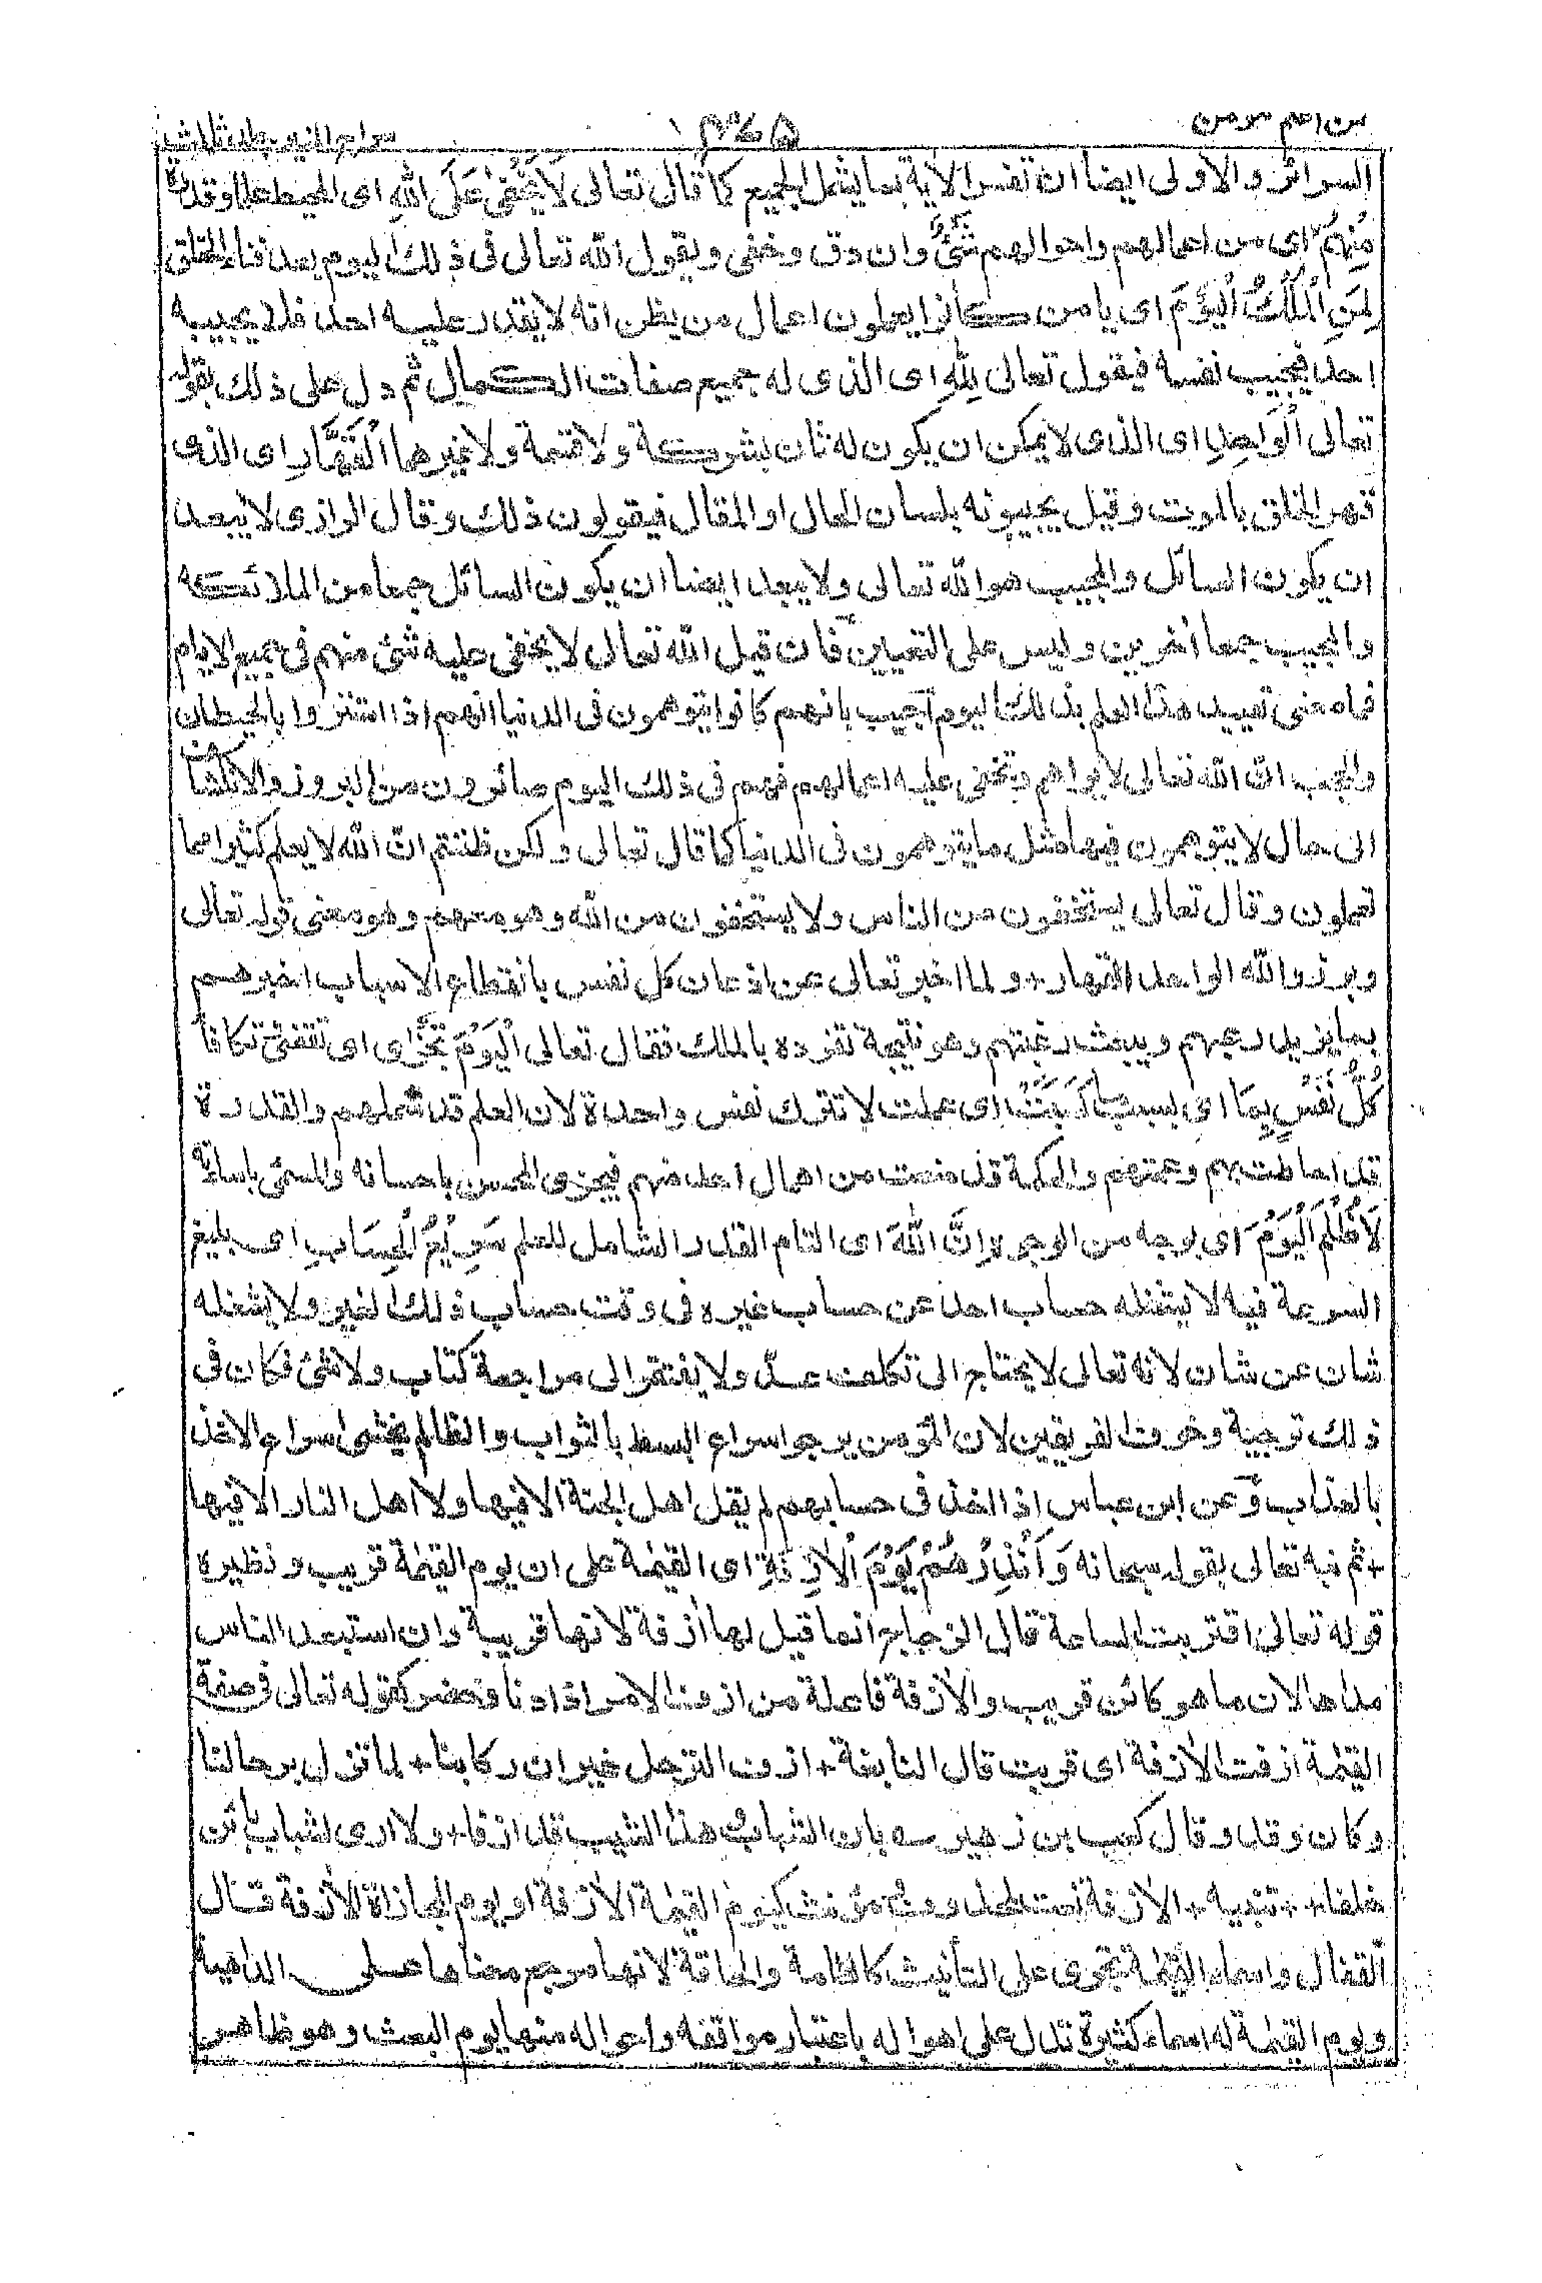 فمن اظلم مؤمن ٤٦٥ سراج المنير جلد ثالث
السرائر والاولى ايضا ان تفسر الاية بما يشمل الجميع كما قال تعالى لَا يَخْفٰى عَلَى اللهِ اى المحيط علما وقدرة
مِنْهُمْ اى من اعمالهم واحوالهم شَىْءٌ وان دق وخفى ويقول الله تعالى فى ذلك اليوم بعد فناء الخلق
لِمَنِ الْمُلْكُ الْيَوْمَ اى يا من كانوا يعملون اعمال من يظن انه لا يقدر عليه احد فلا يجيبه
احد فيجيب نفسه فيقول تعالى لِلّٰهِ اى الذى له جميع صفات الكمال ثم دل على ذلك بقوله
تعالى الْوَاحِدِ اى الذى لا يمكن ان يكون له ثان بشركة ولا قسمة ولا غيرها الْقَهَّارِ اى الذى
قهر الخلق بالموت وقيل يجيبونه بلسان الحال او المقال فيقولون ذلك وقال الرازى لا يبعد
ان يكون السائل والمجيب هو الله تعالى ولا يبعد ايضا ان يكون السائل جمعا من الملائكه
والمجيب جمعا اخرين وليس على التعيين فان قيل الله تعالى لا يخفى عليه شئ منهم فى جميع الايام
فما معنى تقييد هذا العلم بذلك اليوم اجيب بانهم كانوا يتوهمون فى الدنيا انهم اذا استتروا بالحيطان
والحجب ان الله تعالى لا يراهم وتخفى عليه اعمالهم فهم فى ذلك اليوم صائرون من البروز والانكشاف
الى حال لا يتوهمون فيها مثل ما يتوهمون فى الدنيا كما قال تعالى ولكن ظننتم ان الله لا يعلم كثيرا مما
تعملون وقال تعالى يستخفون من الناس ولا يستخفون من الله وهو معهم وهو معنى قوله تعالى
وبرزوا لله الواحد القهار+ ولما اخبر تعالى عن اذعان كل نفس بانقطاع الاسباب اخبرهم
بما يزيد رعبهم ويبعث رغبتهم وهو نتيجة تفرده بالملك فقال تعالى الْيَوْمَ تُجْزٰى اى تقتضى تكافأ
كُلُّ نَفْسٍ بِمَا اى بسبب ما كَسَبَتْ اى عملت لا تترك نفس واحدة لان العلم قد شملهم والقدرة
قد احاطت بهم وعمتهم والحكمة قد منعت من اهمال احد منهم فيجزى المحسن باحسانه والمسئ باساءته
لَا ظُلْمَ الْيَوْمَ اى بوجه من الوجوه اِنَّ اللهَ اى التام القدر الشامل للعلم سَرِيْعُ الْحِسَابِ اى بليغ
السرعة فيه لا يشغله حساب احد عن حساب غيره فى وقت حساب ذلك لغير ولا يشغله
شان عن شان لانه تعالى لا يحتاج الى تكلف عدّ ولا يفتقر الى مراجعة كتاب ولا شئ فكان فى
ذلك ترجية وخوف الفريقين لان المؤمن يرجو اسراع البسط بالثواب والظالم يخشى اسراع الاخذ
بالعذاب وعن ابن عباس اذا اخذ فى حسابهم لم يقل اهل الجنة الا فيها ولا اهل النار الا فيها
+ثم نبه تعالى بقوله سبحانه وَاَنْذِرْهُمْ يَوْمَ الْاٰزِفَةِ اى القيٰمة على ان يوم القيٰمة قريب ونظيره
قوله تعالى اقتربت الساعة قال الزجاج انما قيل لها ازفة لانها قريبة وان استبعد الناس
مداها لان ما هو كائن قريب والازفة فاعلة من ازف الامر اذا دنا وحضر كقوله تعالى فى صفة
القيٰمة ازفت الازفة اى قربت قال النابغة+ ازف الترحل غير ان ركابنا+ لما تزل برحالنا
وكان وقد وقال كعب بن زهير سه بان الشباب وهذا الشيب قد ازفا+ ولا ارى لشباب بائن
خلفا+ +تنبيه+ الازفة نعت لمحذوف مؤنث كيوم القيٰمة الازفة او يوم المجازاة الازفة قال
القفال واسماء القيٰمة تجرى على التأنيث كالطامة والحاقة لانها مرجع معناها على الداهية
ويوم القيٰمة له اسماء كثيرة تدل على اهواله باعتبار مواقفه واحواله منها يوم البعث وهو ظاهر